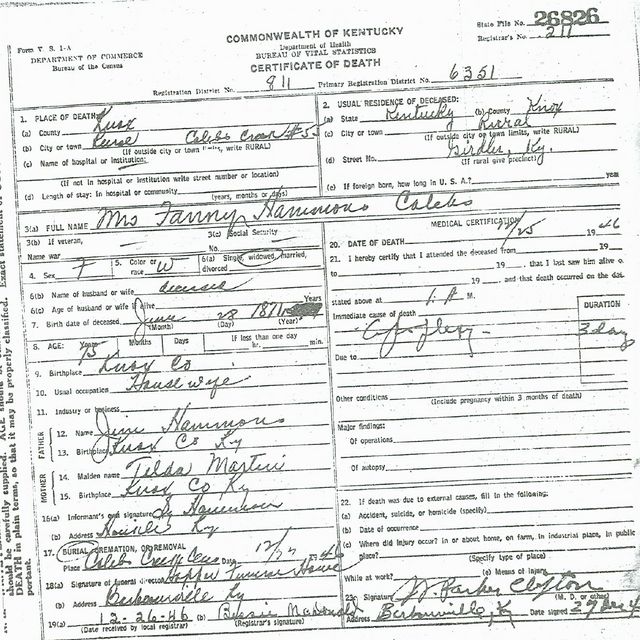 COMMONWEALTH OF KENTUCKY
Department of Health
BUREAU OF VITAL STATISTICS
CERTIFICATE OF DEATH
Form V. S. 1-A
DEPARTMENT OF COMMERCE
Bureau of the Census
State File No. 26826
Registrar's No. 211
Registration District No. 811 Primary Registration District No. 6351
1. PLACE OF DEATH
(a) County Knox
(b) City or town Rural Calebs Creek #5
(If outside city or town limits, write RURAL)
(c) Name of hospital or institution:
(If not in hospital or institution write street number or location)
(d) Length of stay: In hospital or community (years, months or days)
2. USUAL RESIDENCE OF DECEASED:
(a) State Kentucky (b) County Knox
(c) City or town Rural
(If outside city or town limits, write RURAL)
(d) Street No. Girdler, Ky.
(If rural give precinct)
(e) If foreign born, how long in U. S. A.? year
3(a) FULL NAME Mrs Fanny Hammons Calebs
3(b) If veteran,
Name war
3(c) Social Security
No.
4. Sex F 5. Color or race W 6(a) Single, widowed, married, divorced
6(b) Name of husband or wife deceased
6(c) Age of husband or wife if alive Years
7. Birth date of deceased June 28 1871
(Month) (Day) (Year)
8. AGE: Years 75 Months Days If less than one day
hr. min.
9. Birthplace Knox Co
10. Usual occupation House wife
11. Industry or business
FATHER
12. Name Jim Hammons
13. Birthplace Knox Co Ky
MOTHER
14. Maiden name Tilda Martin
15. Birthplace Knox Co Ky
16(a) Informant's own signature Hammons
(b) Address Ky
17. BURIAL, CREMATION, OR REMOVAL
Place Calebs Creek Date 12/27 1946
18(a) Signature of funeral director Hopper Funeral Home
(b) Address Barbourville Ky
19(a) 12-26-46 (b) Bessie
(Date received by local registrar) (Registrar's signature)
MEDICAL CERTIFICATION
20. DATE OF DEATH 12/25 1946
21. I hereby certify that I attended the deceased from 19
to 19 , that I last saw him alive o
19 and that death occurred on the da
stated above at 1. A M.
DURATION
Immediate cause of death
3 days
Due to
Other conditions
(Include pregnancy within 3 months of death)
Major findings:
Of operations
Of autopsy
22. If death was due to external causes, fill in the following:
(a) Accident, suicide, or homicide (specify)
(b) Date of occurrence
(c) Where did injury occur? In or about home, on farm, in industrial place, in public
place?
(Specify type of place)
While at work? (e) Means of injury
23. Signature Parker
(M. D. or other)
Address Barbourville, K Date signed 27 Dec 4
should be carefully supplied. AGE should be
DEATH in plain terms, so that it may be properly classified. Exact statement of
portant.